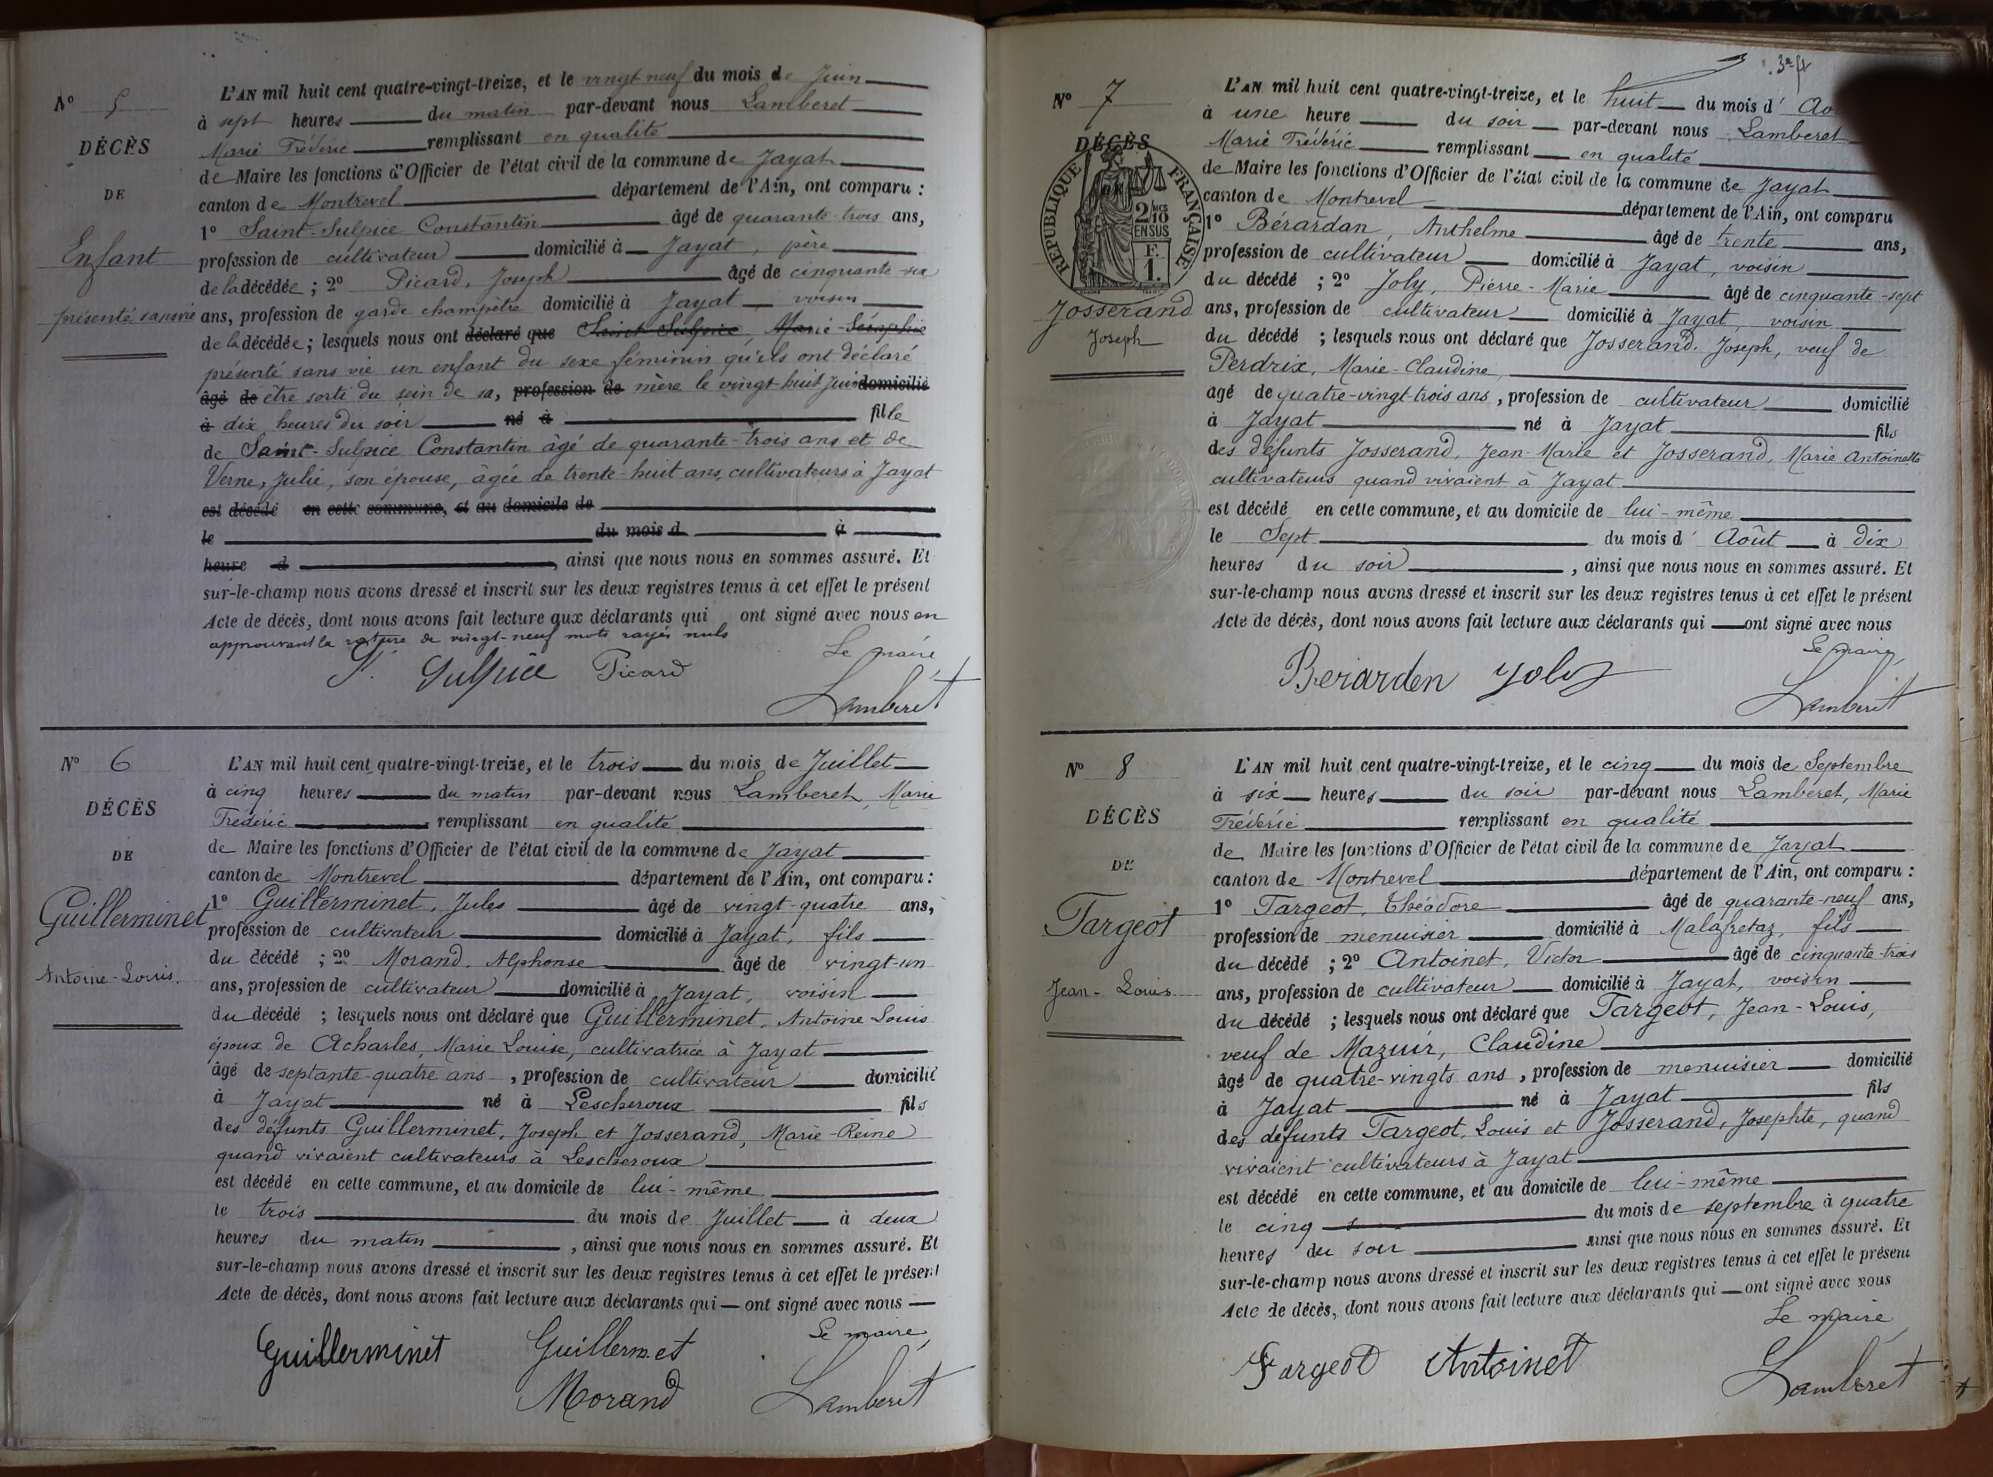 N° 5
DÉCÈS
DE
Enfant
présenté sans vie
L'AN mil huit cent quatre-vingt-treize, et le vingt neuf du mois de Juin
à sept heures du matin par-devant nous Lamberet
Marie Frédéric remplissant en qualité
de Maire les fonctions d'Officier de l'état civil de la commune de Jayat
canton de Montrevel département de l'Ain, ont comparu :
1° Saint-Sulpice Constantin âgé de quarante-trois ans,
profession de cultivateur domicilié à Jayat, père
de la décédée ; 2° Picard, Joseph âgé de cinquante-six
ans, profession de garde champêtre domicilié à Jayat voisin
de la décédée ; lesquels nous ont déclaré que Saint Sulpice, Marie-Séraphie
présenté sans vie un enfant du sexe féminin qu'ils ont déclaré
âgé de être sorti du sein de sa, profession de mère le vingt-huit juin domicilié
à dix heures du soir né à fille
de Saint-Sulpice Constantin âgé de quarante-trois ans et de
Verne, Julie, son épouse, âgée de trente-huit ans, cultivateurs à Jayat
est décédé en cette commune, et au domicile de
le du mois d à
heure d , ainsi que nous nous en sommes assuré. Et
sur-le-champ nous avons dressé et inscrit sur les deux registres tenus à cet effet le présent
Acte de décès, dont nous avons fait lecture aux déclarants qui ont signé avec nous en
approuvant la rature de vingt-neuf mots rayés nuls
Le maire,
St Sulpice Picard
Lamberet
N° 6
DÉCÈS
DE
Guillerminet
Antoine-Louis.
L'AN mil huit cent quatre-vingt-treize, et le trois du mois de Juillet
à cinq heures du matin par-devant nous Lamberet, Marie
Frédéric remplissant en qualité
de Maire les fonctions d'Officier de l'état civil de la commune de Jayat
canton de Montrevel département de l'Ain, ont comparu :
1° Guillerminet, Jules âgé de vingt-quatre ans,
profession de cultivateur domicilié à Jayat, fils
du décédé ; 2° Morand, Alphonse âgé de vingt-un
ans, profession de cultivateur domicilié à Jayat, voisin
du décédé ; lesquels nous ont déclaré que Guillerminet, Antoine Louis
époux de Acharles, Marie Louise, cultivatrice à Jayat
âgé de septante-quatre ans, profession de cultivateur domicilié
à Jayat né à Lescheroux fils
des défunts Guillerminet, Joseph et Josserand, Marie-Reine
quand vivaient cultivateurs à Lescheroux
est décédé en cette commune, et au domicile de lui-même
le trois du mois de Juillet à deux
heures du matin , ainsi que nous nous en sommes assuré. Et
sur-le-champ nous avons dressé et inscrit sur les deux registres tenus à cet effet le présent
Acte de décès, dont nous avons fait lecture aux déclarants qui ont signé avec nous
Le maire,
Guillerminet Guillermet
Morand Lamberet
N° 7
DÉCÈS
RÉPUBLIQUE FRANÇAISE
2/10 EN SUS
F. 1.
Josserand
Joseph
L'AN mil huit cent quatre-vingt-treize, et le huit du mois d' Ao
à une heure du soir par-devant nous Lamberet
Marie Frédéric remplissant en qualité
de Maire les fonctions d'Officier de l'état civil de la commune de Jayat
canton de Montrevel département de l'Ain, ont comparu
1° Bérardan, Anthelme âgé de trente ans,
profession de cultivateur domicilié à Jayat, voisin
du décédé ; 2° Joly, Pierre-Marie âgé de cinquante-sept
ans, profession de cultivateur domicilié à Jayat, voisin
du décédé ; lesquels nous ont déclaré que Josserand, Joseph, veuf de
Perdrix, Marie-Claudine,
agé de quatre-vingt-trois ans, profession de cultivateur domicilié
à Jayat né à Jayat fils
des défunts Josserand, Jean-Marie et Josserand, Marie Antoinette
cultivateurs quand vivaient à Jayat
est décédé en cette commune, et au domicile de lui-même
le Sept du mois d' Août à dix
heures du soir , ainsi que nous nous en sommes assuré. Et
sur-le-champ nous avons dressé et inscrit sur les deux registres tenus à cet effet le présent
Acte de décès, dont nous avons fait lecture aux déclarants qui ont signé avec nous
Le maire,
Berarden Joly
Lamberet
N° 8
DÉCÈS
DE
Targeot
Jean-Louis
L'AN mil huit cent quatre-vingt-treize, et le cinq du mois de Septembre
à six heures du soir par-devant nous Lamberet, Marie
Frédéric remplissant en qualité
de Maire les fonctions d'Officier de l'état civil de la commune de Jayat
canton de Montrevel département de l'Ain, ont comparu :
1° Targeot, Théodore âgé de quarante-neuf ans,
profession de menuisier domicilié à Malafretaz, fils
du décédé ; 2° Antoinet, Victor âgé de cinquante-trois
ans, profession de cultivateur domicilié à Jayat, voisin
du décédé ; lesquels nous ont déclaré que Targeot, Jean-Louis,
veuf de Mazuir, Claudine
âgé de quatre-vingts ans, profession de menuisier domicilié
à Jayat né à Jayat fils
des défunts Targeot, Louis et Josserand, Josephte, quand
vivaient cultivateurs à Jayat
est décédé en cette commune, et au domicile de lui-même
le cinq du mois de septembre à quatre
heures du soir ainsi que nous nous en sommes assuré. Et
sur-le-champ nous avons dressé et inscrit sur les deux registres tenus à cet effet le présent
Acte de décès, dont nous avons fait lecture aux déclarants qui ont signé avec nous
Le maire,
Targeot Antoinet
Lamberet